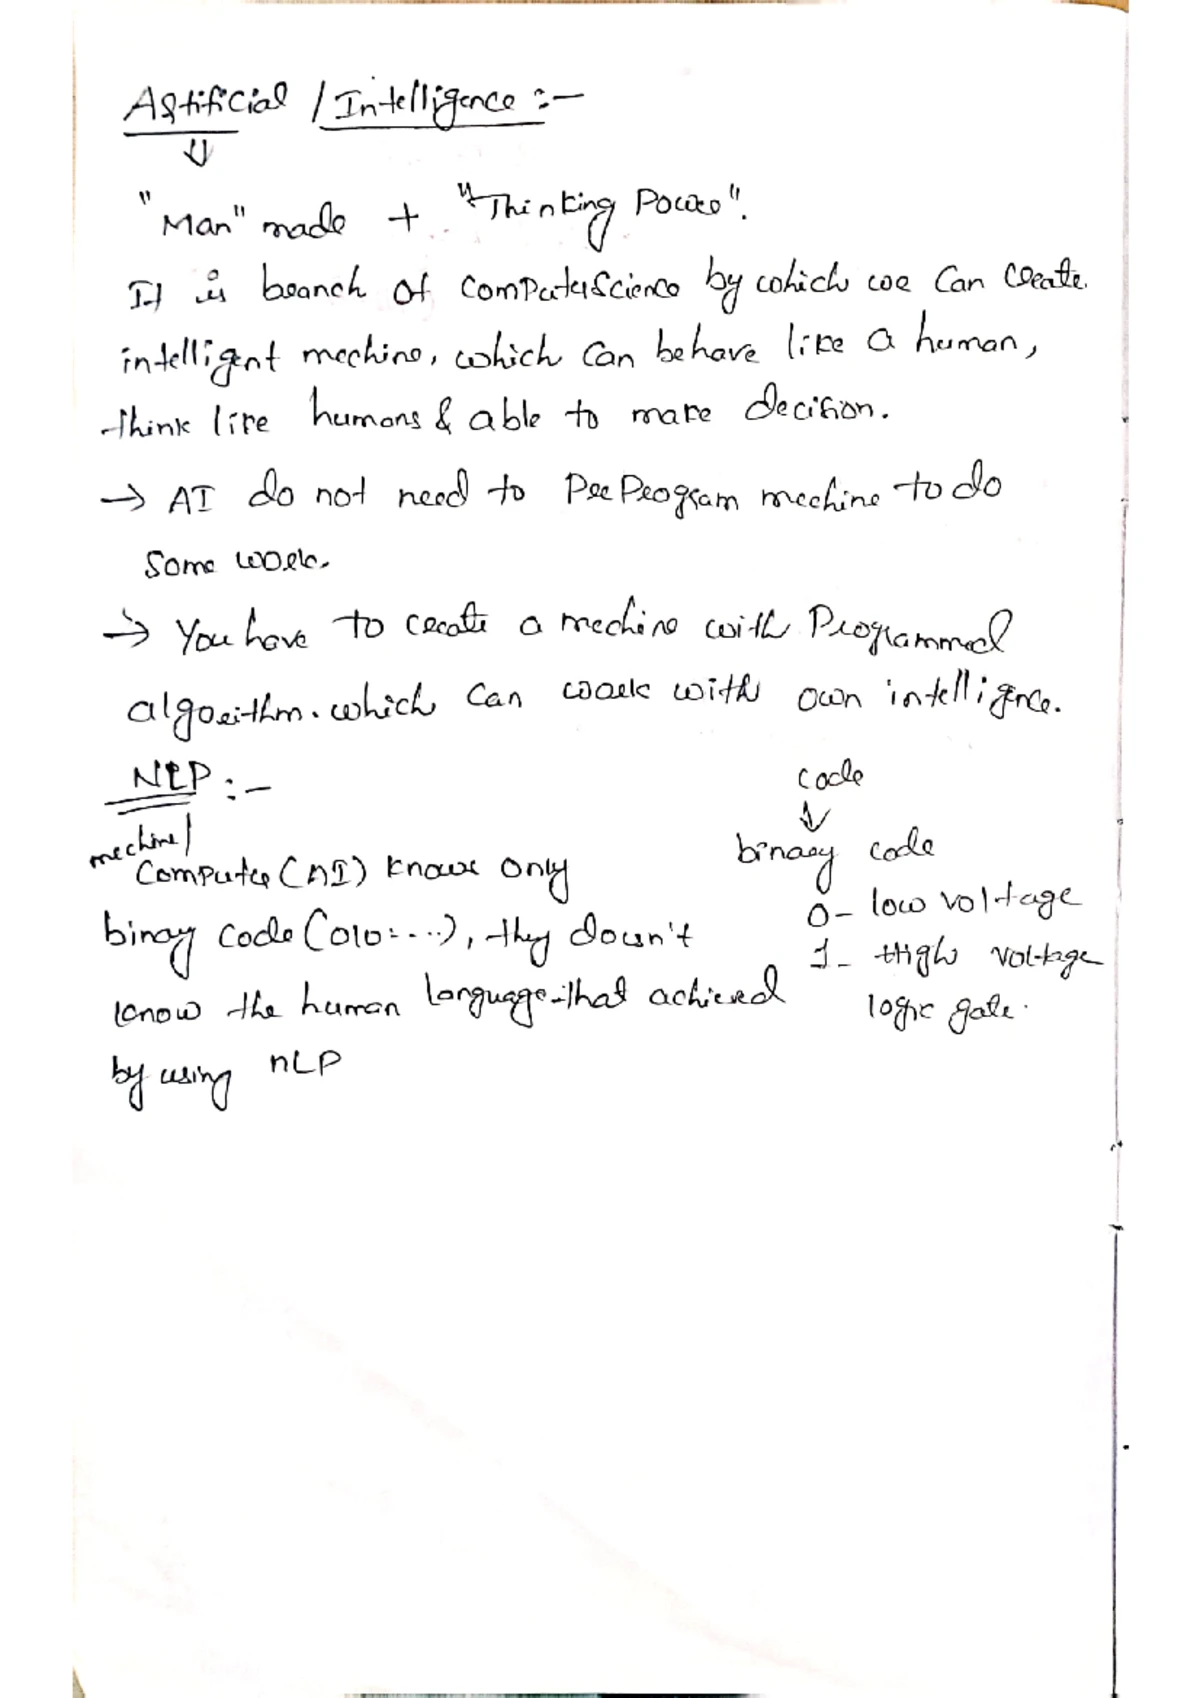 Artificial / Intelligence :-
⇓
"Man" made + "Thinking Power".
It is branch of Computer Science by which we Can Create
intelligent mechine, which Can behave like a human,
think like humans & able to make decision.
→ AI do not need to PreProgram mechine to do
Some work.
→ You have to create a mechine with Programmed
algorithm. which Can work with own intelligence.
NLP :-
mechine/
Computer (AI) knows only
binay Code (010:...), they doesn't
know the human language that achieved
by using nLP
code
↓
binary code
0- low voltage
1- High voltage
logic gate.